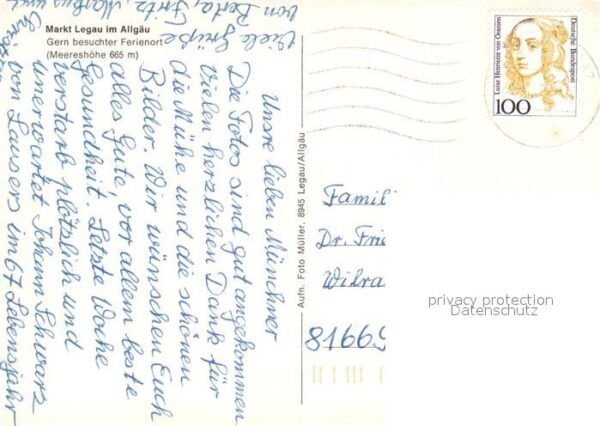 Markt Legau im Allgäu
Gern besuchter Ferienort
(Meereshöhe 665 m)
Unsre lieben Münchner
Die Fotos sind gut angekommen
Vielen herzlichen Dank für
die Mühe und die schönen
Bilder. Wir wünschen Euch
alles Gute, vor allem beste
Gesundheit. Letzte Woche
verstarb plötzlich und
unerwartet Johann Schwarz
vom Lausers im 67 Lebensjahr
Viele Grüße
von Berta, Fritz, Markus und
Aufn. Foto Müller, 8945 Legau/Allgäu
Luise Henriette von Oranien
Deutsche Bundespost
100
Famili
Dr. Frie
Wilra
81669
privacy protection
Datenschutz